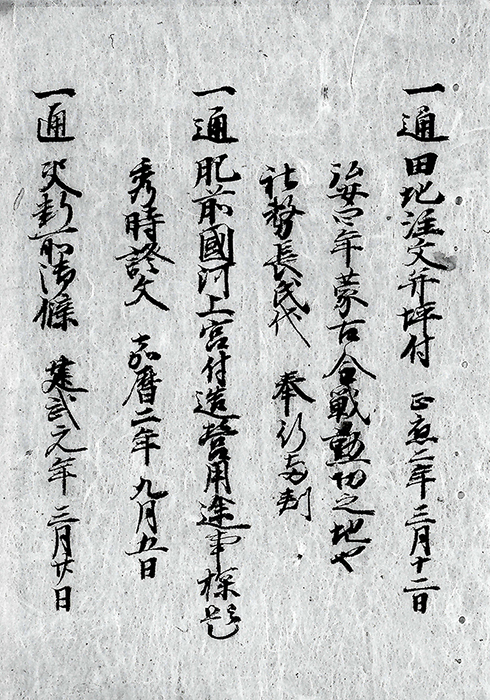 一通 田地注文并坪付 正応二年三月十二日
弘安四年蒙古合戦勲功之地也
社務長民代 奉行有判
一通 肥前國河上宮付造營用途事探題
秀時證文 嘉暦二年九月五日
一通 安勘所御條 建武元年三月廿日